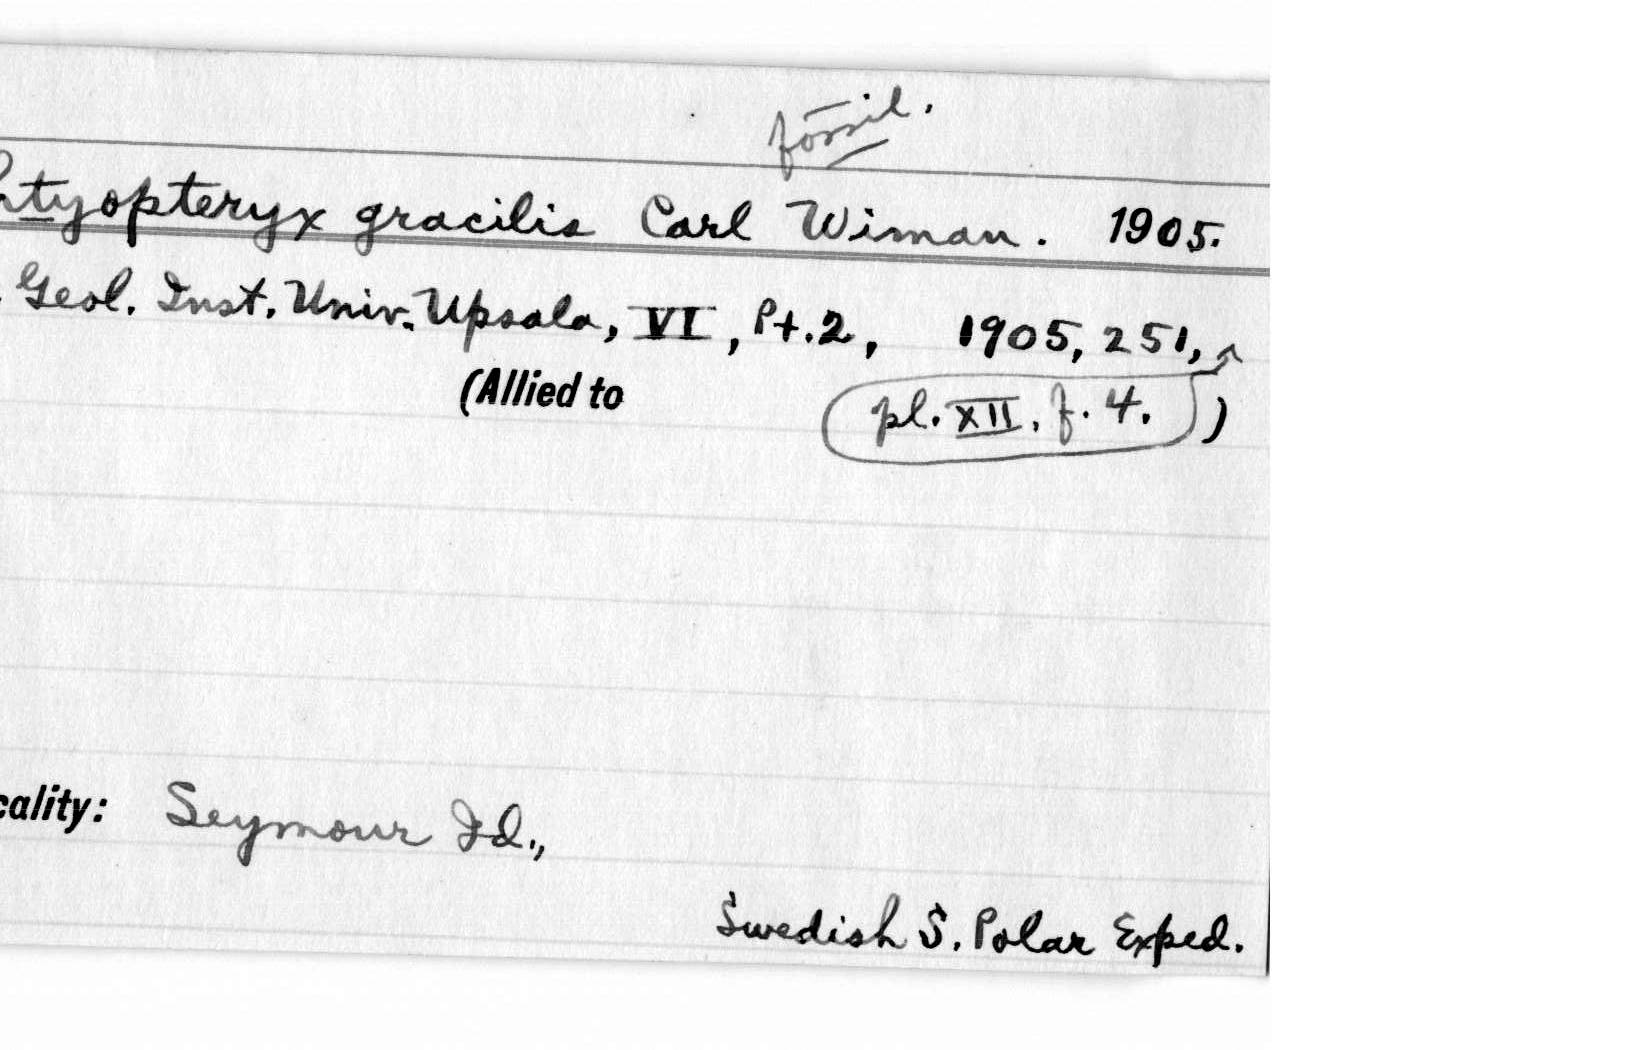 fossil.
htyopteryx gracilis Carl Wiman. 1905.
Geol. Inst. Univ. Upsala, VI, Pt.2, 1905, 251,
(Allied to pl. XII, f. 4. )
cality: Seymour Id.,
Swedish S. Polar Exped.